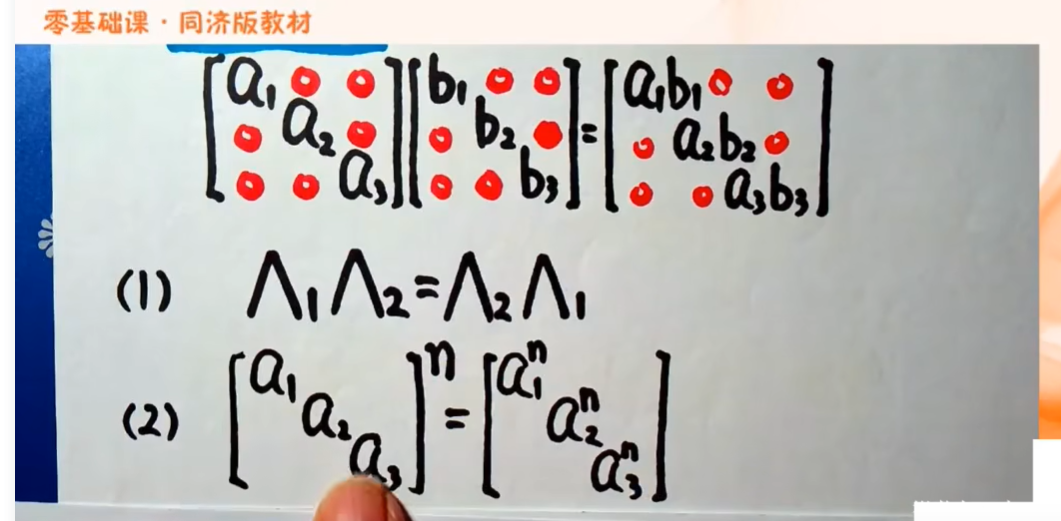 零基础课·同济版教材
[a₁ 0 0; 0 a₂ 0; 0 0 a₃][b₁ 0 0; 0 b₂ 0; 0 0 b₃]=[a₁b₁ 0 0; 0 a₂b₂ 0; 0 0 a₃b₃]
(1) Λ₁Λ₂=Λ₂Λ₁
(2) [a₁ a₂ a₃]ⁿ=[a₁ⁿ a₂ⁿ a₃ⁿ]